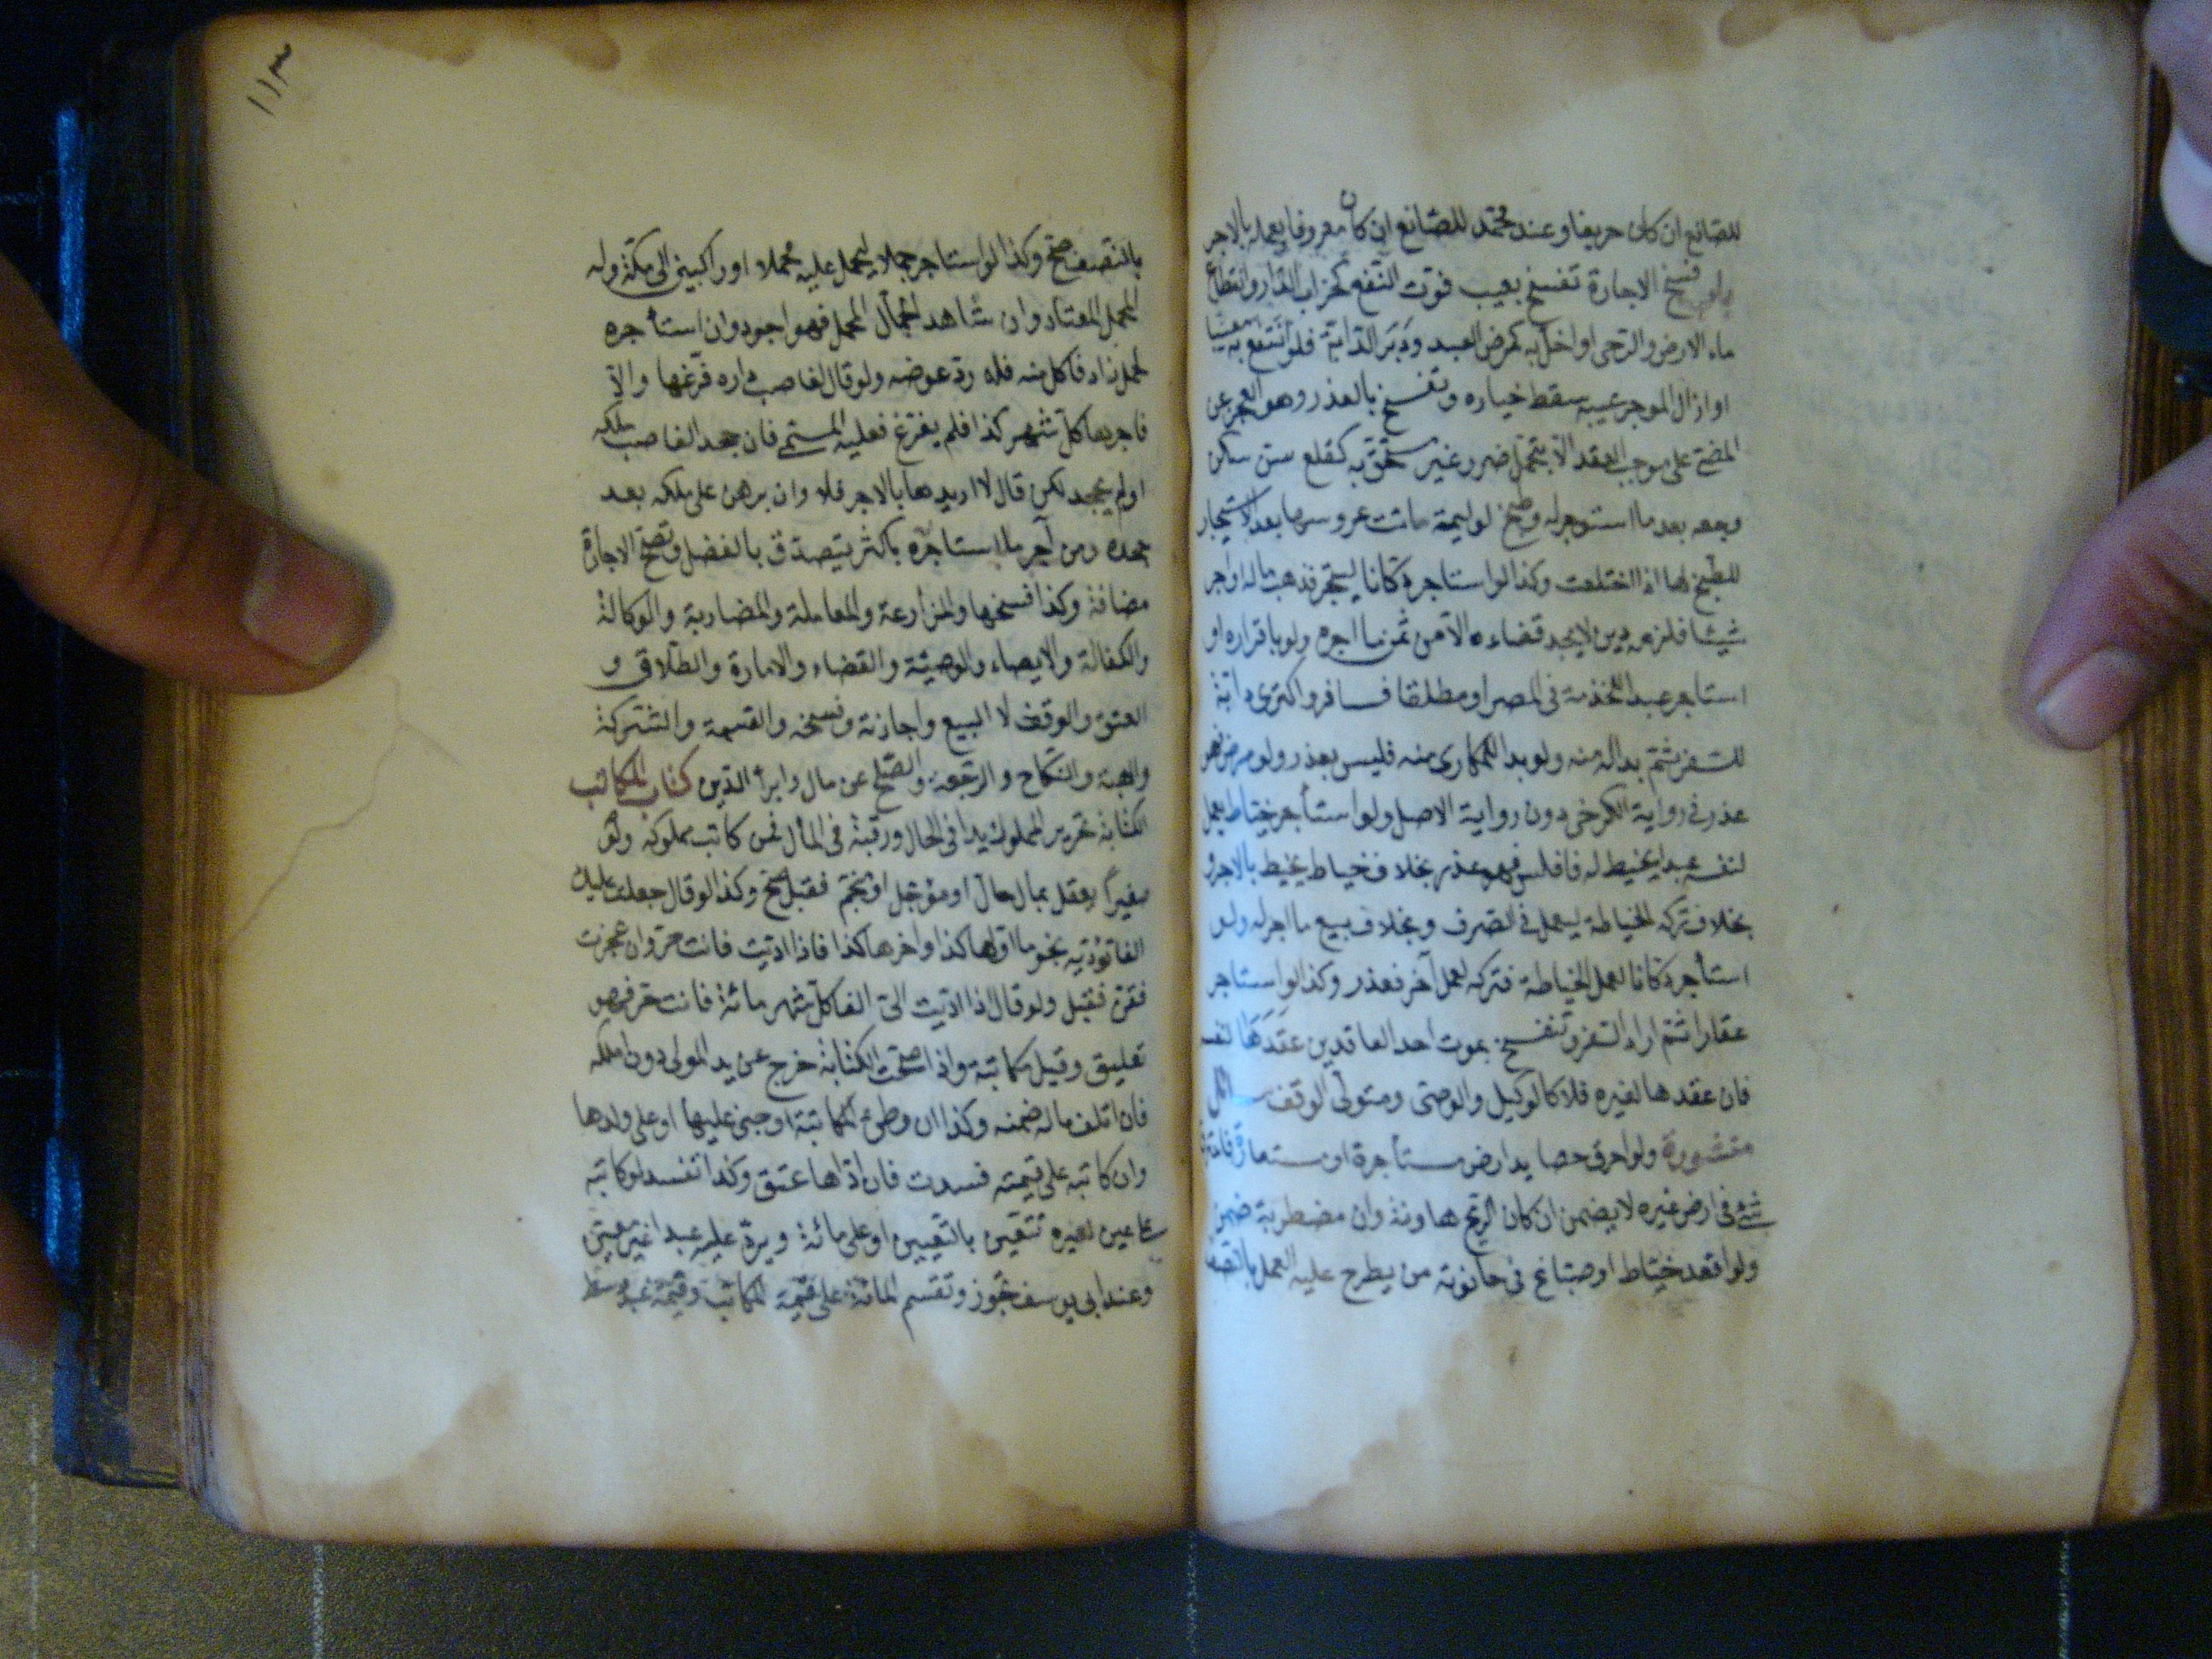 للصانع ان كان حريفا وعند محمد للصانع ان كان معروفا بعمله بالاجر
فسخ الاجارة تفسخ بعيب فوت النفع كخراب الدار وانقطاع
ماء الارض والرحى او اخل به كمرض العبد ودبر الدابة فلو انتفع به معيبا
او ازال الموجر عيبه سقط خياره وتفسخ بالعذر وهو العجز عن
المضي على موجب العقد الا بتحمل ضرر غير مستحق به كقلع سن سكن
وجعه بعد ما استوجر له وطبخ لوليمة ماتت عروسها بعد الاستيجار
للطبخ لها اذا اختلعت وكذا لو استاجر دكانا ليتجر فذهب ماله او اجر
شيئا فلزمه دين لا يجد قضاءه الا من ثمن ما اجره ولو باقراره او
استاجر عبدا للخدمة في المصر او مطلقا فسافر او اكترى دابة
للسفر ثم بدا له منه ولو بدا للمكارى منه فليس بعذر ولو مرض فهو
عذر في رواية الكرخى دون رواية الاصل ولو استأجر خياط يعمل
لنفسه عبدا يخيط له فافلس فهو عذر بخلاف خياط يخيط بالاجر و
بخلاف تركه الخياطة ليعمل في الصرف وبخلاف بيع ما اجر له ولو
استأجر دكانا لعمل الخياطة فتركه لعمل آخر فعذر وكذا لو استاجر
عقارا ثم اراد السفر وتنفسخ بموت احد العاقدين عقدها لنفسه
فان عقدها لغيره فلا كالوكيل والوصى ومتولى الوقف مسائل
منثورة ولو احرق حصايد ارض مستأجرة او مستعارة فاحترق
شئ في ارض غيره لا يضمن ان كان الريح هاونة وان مضطربة ضمن
ولو اقعد خياط او صباغ في حانوته من يطرح عليه العمل بالنصف
١١٣
بالنصف صح وكذا لو استاجر جملا ليحمل عليه محملا او راكبين الى مكة وله
المحمل المعتاد وان شاهد الجمال المحمل فهو اجود وان استأجره
لحمل زاد فاكل منه فله رد عوضه ولو قال لغاصب داره فرغها والا
فاجرها كل شهر كذا فلم يفرغ فعليه المسمى فان جحد الغاصب ملكه
او لم يجحد لكن قال لا اريدها بالاجر فلا وان برهن على ملكه بعد
جحده ومن آجر ما استاجره باكثر يتصدق بالفضل وتصح الاجارة
مضافة وكذا فسخها والمزارعة والمعاملة والمضاربة والوكالة
والكفالة والايصاء والوصية والقضاء والامارة والطلاق و
العتق والوقف لا البيع واجازته وفسخه والقسمة والشركة
والهبة والنكاح والرجعة والصلح عن مال وابرأ الدين كتاب المكاتب
الكتابة تحرير المملوك يدا في الحال ورقبة في المأل فمن كاتب مملوكه ولو
صغيرا يعقل بمال حال او مؤجل او منجم فقبل صح وكذا لو قال جعلت عليك
الفا تؤديه نجوما اولها كذا واخرها كذا فاذا اديت فانت حر وان عجزت
فقن فقبل ولو قال اذا اديت الى الفا كل شهر مائة فانت حر فهو
تعليق وقيل مكاتبة واذا صحت الكتابة خرج عن يد المولى دون ملكه
فان اتلف ماله ضمنه وكذا ان وطئ المكاتبة او جنى عليها او على ولدها
وان كاتبه على قيمته فسدت فان اداها عتق وكذا تفسد لو كاتبه
على عين لغيره تتعين بالتعيين او على مائة ويرد عليه عبدا غير معين
وعند ابى يوسف تجوز وتقسم المائة على قيمة المكاتب وقيمة عبد وسط